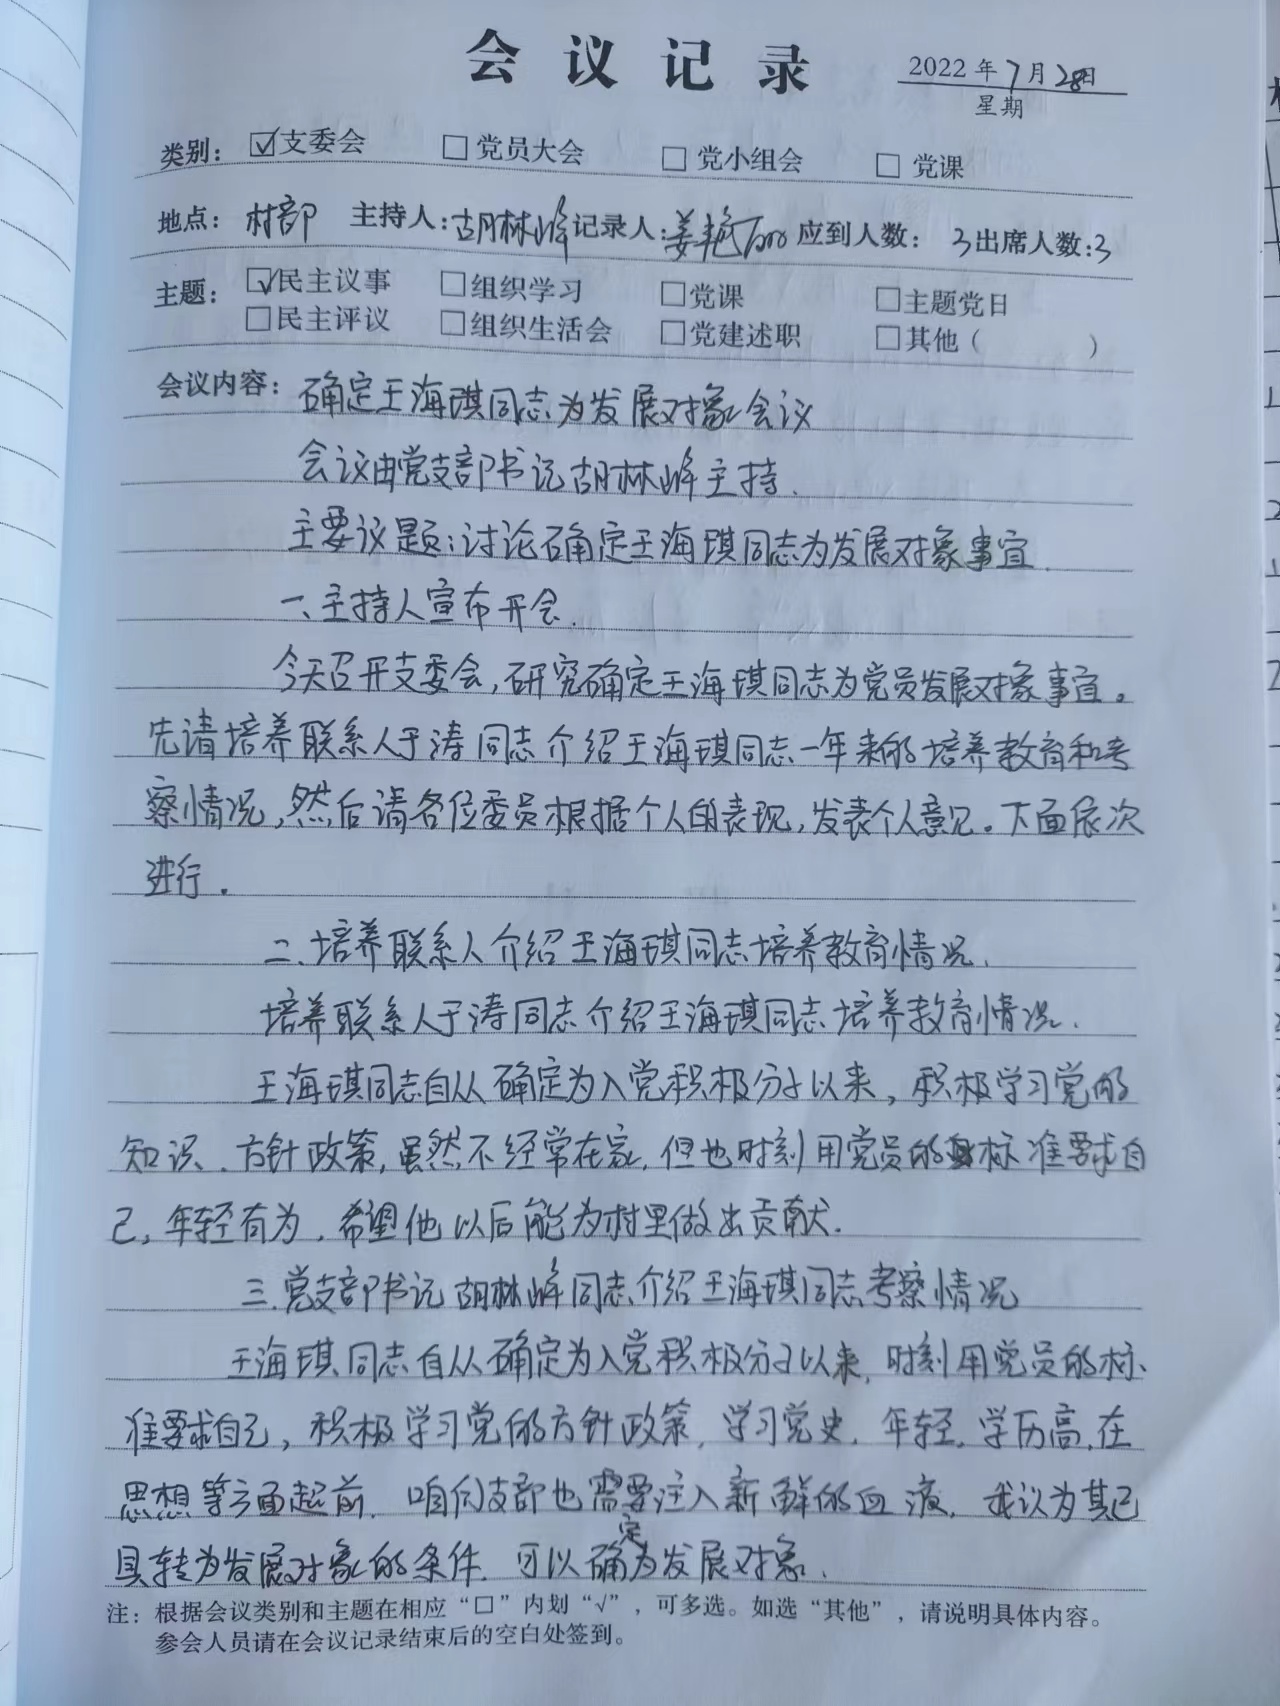 会议记录
2022年7月28日
星期
类别：☑支委会 □党员大会 □党小组会 □党课
地点：村部 主持人：胡林峰 记录人：姜艳丽 应到人数：3 出席人数：3
主题：☑民主议事 □组织学习 □党课 □主题党日
□民主评议 □组织生活会 □党建述职 □其他（ ）
会议内容：确定王海琪同志为发展对象会议
会议由党支部书记胡林峰主持.
主要议题：讨论确定王海琪同志为发展对象事宜.
一、主持人宣布开会.
今天召开支委会，研究确定王海琪同志为党员发展对象事宜。
先请培养联系人于涛同志介绍王海琪同志一年来的培养教育和考
察情况，然后请各位委员根据个人的表现，发表个人意见。下面依次
进行。
二、培养联系人介绍王海琪同志培养教育情况.
培养联系人于涛同志介绍王海琪同志培养教育情况.
王海琪同志自从确定为入党积极分子以来，积极学习党的
知识、方针政策，虽然不经常在家，但也时刻用党员的标准要求自
己，年轻有为，希望他以后能为村里做出贡献.
三、党支部书记胡林峰同志介绍王海琪同志考察情况
王海琪同志自从确定为入党积极分子以来，时刻用党员的标
准要求自己，积极学习党的方针政策，学习党史，年轻，学历高，在
思想等方面超前，咱们支部也需要注入新鲜的血液，我认为其已
具转为发展对象的条件，可以确定为发展对象.
注：根据会议类别和主题在相应“□”内划“√”，可多选。如选“其他”，请说明具体内容。
参会人员请在会议记录结束后的空白处签到。